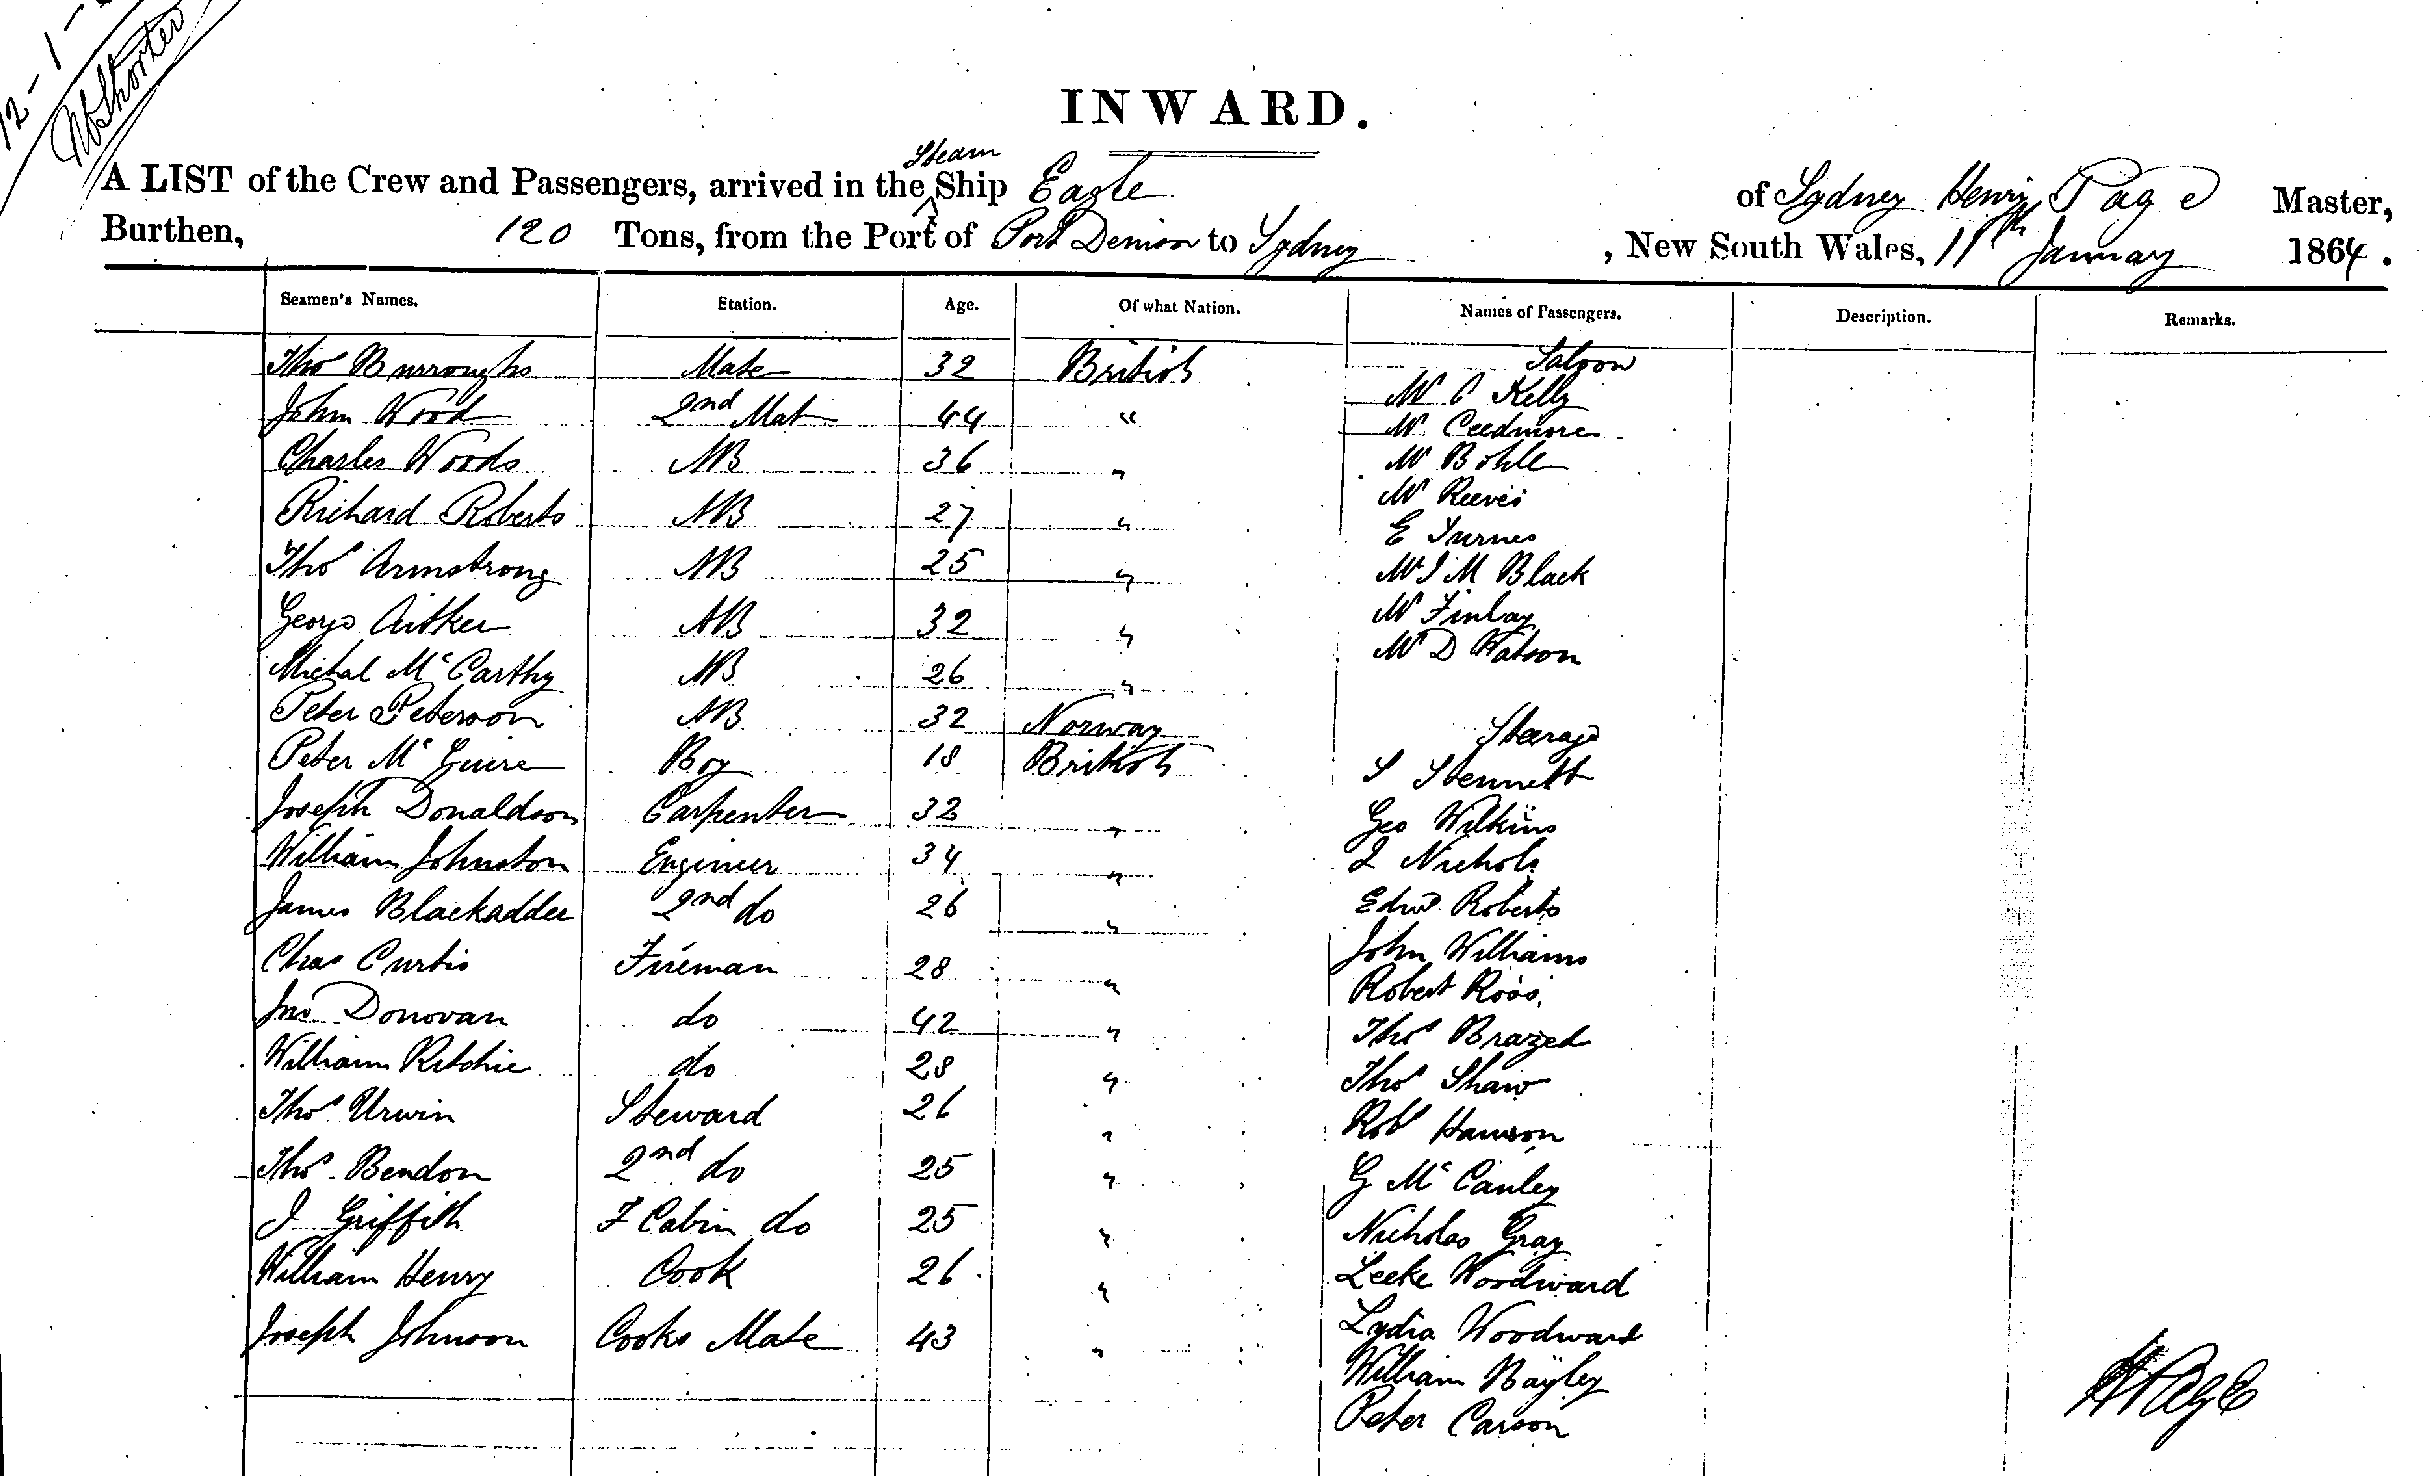 12-1-
INWARD.
Steam
A LIST of the Crew and Passengers, arrived in the Ship Eagle of Sydney Henry Page Master,
Burthen, 120 Tons, from the Port of Port Denison to Sydney , New South Wales, 11th January 1864.
Seamen's Names. Station. Age. Of what Nation. Names of Passengers. Description. Remarks.
Saloon
Thos Burroughs Mate 32 British
Mr C Kelly
John Wood 2nd Mate 44 "
Mr Ceedmore
Charles Woods AB 36 "
Mr Bohle
Mr Reeves
Richard Roberts AB 27 "
E Turner
Thos Armstrong AB 25 "
Mr J M Black
George Aitken AB 32 "
Mr Finlay
Mr D Watson
Michal McCarthy AB 26 "
Peter Peterson AB 32 Norway
Steerage
Peter McGuire Boy 18 British
S Stennett
Joseph Donaldson Carpenter 32 "
Geo Wilkins
William Johnston Engineer 34 "
J Nichols
James Blackadder 2nd do 26 "
Edwd Roberts
Chas Curtis Fireman 28 "
John Williams
Robert Ross
Jno Donovan do 42 "
Thos Brazel
William Ritchie do 28 "
Thos Shaw
Thos Urwin Steward 26 "
Robt Hanson
Thos Bendon 2nd do 25 "
G McCauley
J Griffith F Cabin do 25 "
Nicholas Gray
William Henry Cook 26 "
Leeke Woodward
Joseph Johnson Cooks Mate 43 "
Lydia Woodward
William Bayley
Peter Carson
H Page